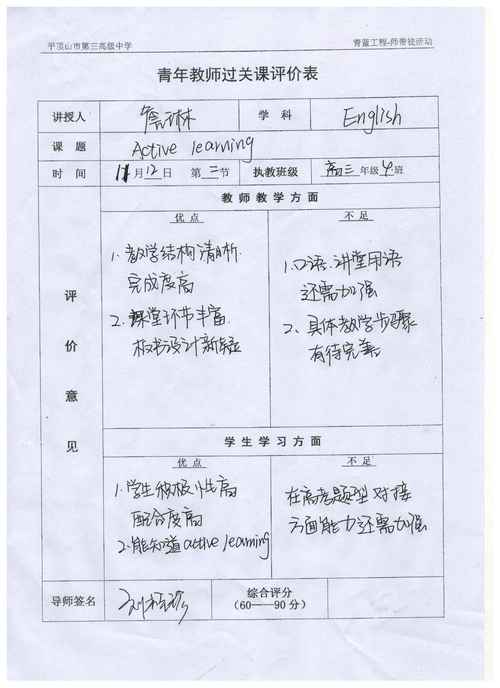 平顶山市第三高级中学 青蓝工程-师带徒活动
青年教师过关课评价表
讲授人 詹琳 学科 English
课题 Active learning
时间 11月12日 第二节 执教班级 高三年级4班
评价意见
教师教学方面
优点 不足
1. 教学结构清晰.
完成度高
2. 课堂环节丰富.
板书设计新颖
1. 口语.讲堂用语
还需加强
2、具体教学步骤
有待完善
学生学习方面
优点 不足
1. 学生积极性高
配合度高
2. 能知道active learning
在高考题型对接
方面能力还需加强
导师签名 综合评分
(60——90分)